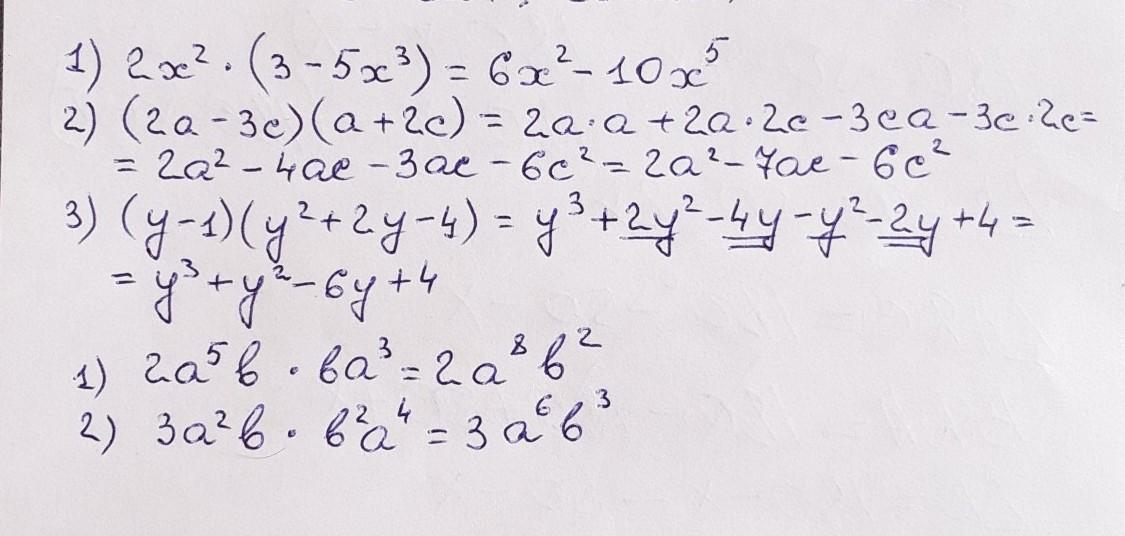 1) 2x² · (3 - 5x³) = 6x² - 10x⁵
2) (2a - 3c)(a + 2c) = 2a·a + 2a·2c - 3ca - 3c·2c =
= 2a² - 4ac - 3ac - 6c² = 2a² - 7ac - 6c²
3) (y - 1)(y² + 2y - 4) = y³ + 2y² - 4y - y² - 2y + 4 =
= y³ + y² - 6y + 4
1) 2a⁵b · ba³ = 2a⁸b²
2) 3a²b · b²a⁴ = 3a⁶b³